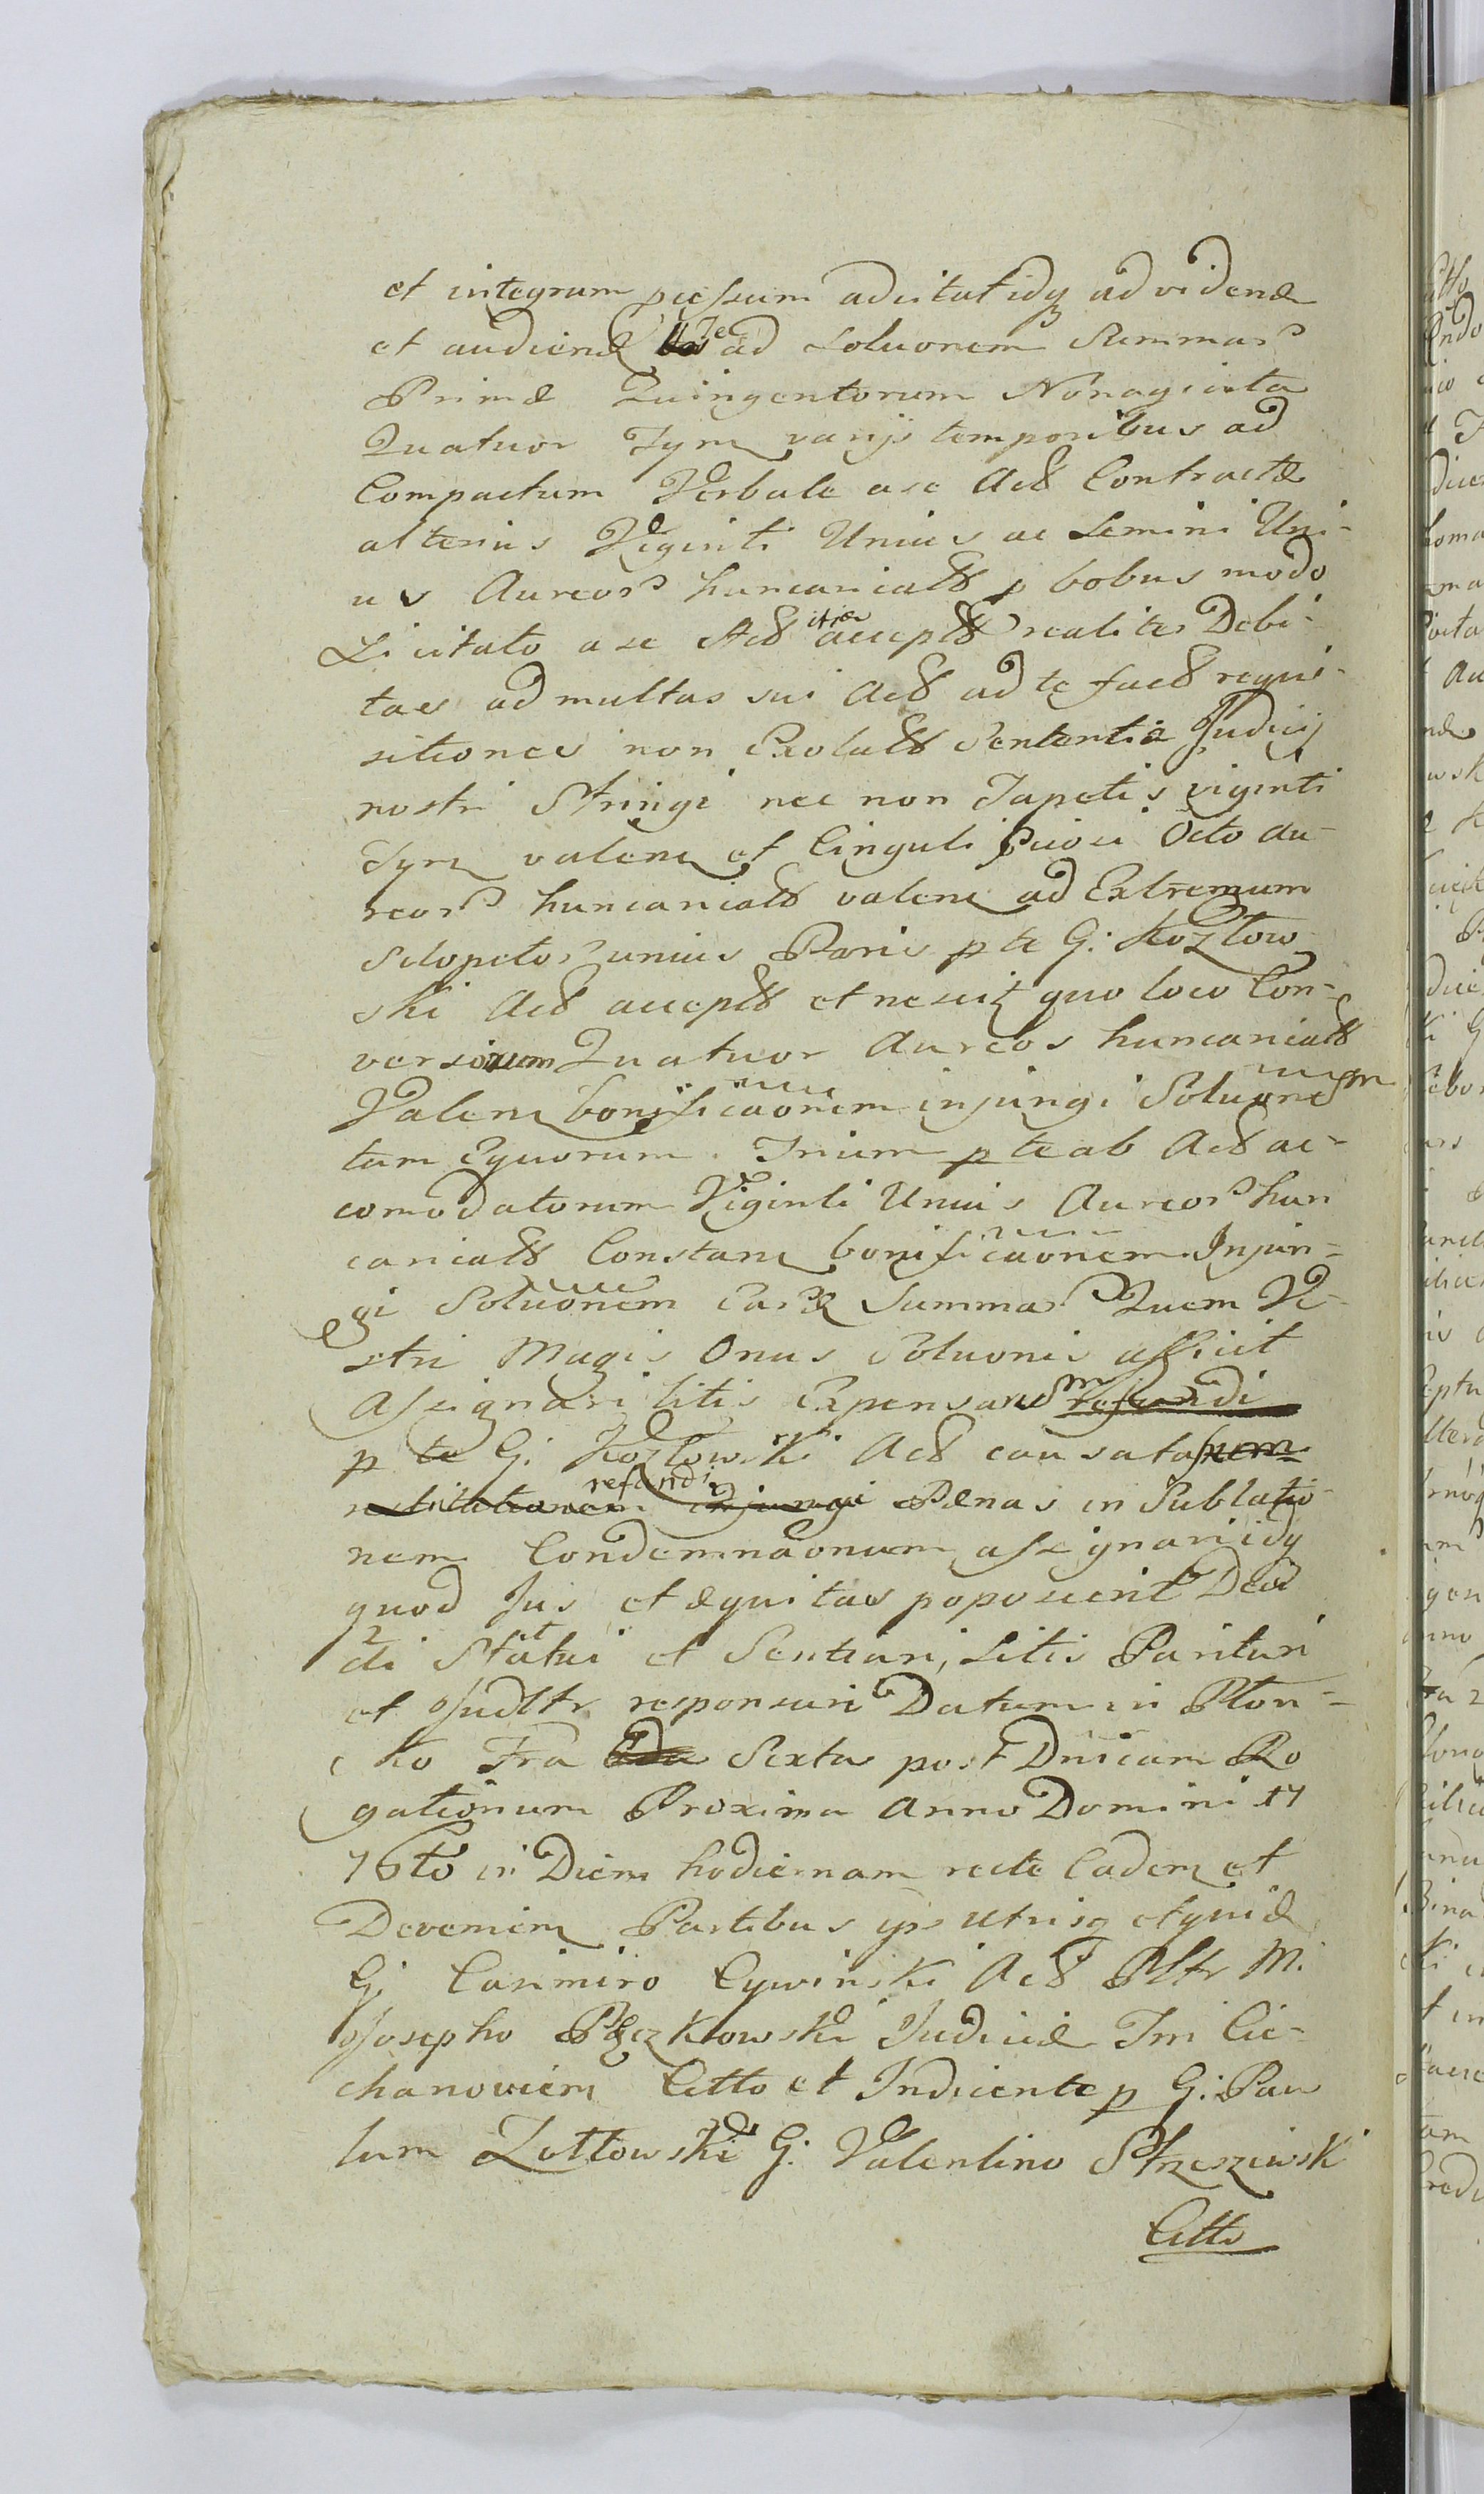 et integrum pressum adcitat idq ad videnđ
et audienđ Te ad Soluonem Summar
Primæ Quingentorum Nonaginta
Quatuor Tym varijs temporibus ad
Compactum Verbale a se Act Contractæ
alterius Viginti Unius ac Semini Uni-
us Aureor huncanicalt p bobus modo
Licitato a se Act itid accept realiter Debi-
tas ad multas sui Act ad te fact requi-
sitiones non Exolutt Sententia Judicij
nostri Stringi nec non Tapetis viginti
Tym valen et Cinguli Octo Au-
reor huncanicalt valen ad Extremum
Sclopetor unius Paris p te G: Kozłow
ski Act accept et nescit quo loco Con-
versorum Quatuor Aureos huncanicalt
Valen bonificaonem injungi Soluonem
tum Equorum Trium p te ab Act ac-
comodatorum Viginti Unius Aureor hun
canicalt Constan bonificaonem Injun-
gi Soluonem Earđ Summar Quem Ve-
stri Magis Onus Soluonis afficit
Assignari litis Expensas refundi
p te G. Kozłowski Act causatas
restitutionem refundi injungi Pænas in Sublatio-
nem Condemnaonum assignari idq
quod Jus et æquitas poposcerit Deci
di Statui et Sentiari, Litis Parituri
et Judltr responsuri Datum in Płon-
sko Fra Sexta post Dnicam Ro
gationum Proxima Anno Domini 17
76to in Diem hodiernam recte Caden et
Devenien Partibus ijs Utrisq etquid
G: Casimiro Cywinski Act Pltr M.
Josepho Pączkowski Judice Tri Cie-
chanovien Citto et Indicente p G: Pau
lum Żółtowski G: Valentino Strzeszewsk
Citto